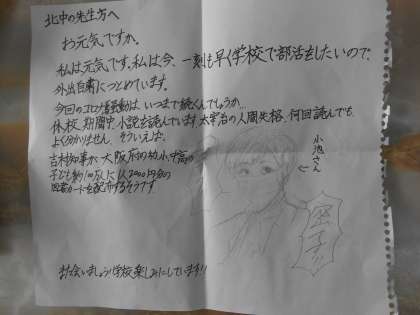 北中の先生方へ
お元気ですか。
私は元気です。私は今、一刻も早く学校で部活をしたいので、
外出自粛につとめています。
今回のコロナ騒動は、いつまで続くんでしょうか…
休校期間中、小説を読んでいます。太宰治の人間失格、何回読んでも、
よく分かりません。そういえば、
吉村知事が大阪府の幼小中高の
子ども約100万人に1人2000円分の
図書カードを配布するそうです
小池さん
密です!!
また会いましょう!学校楽しみにしています!!